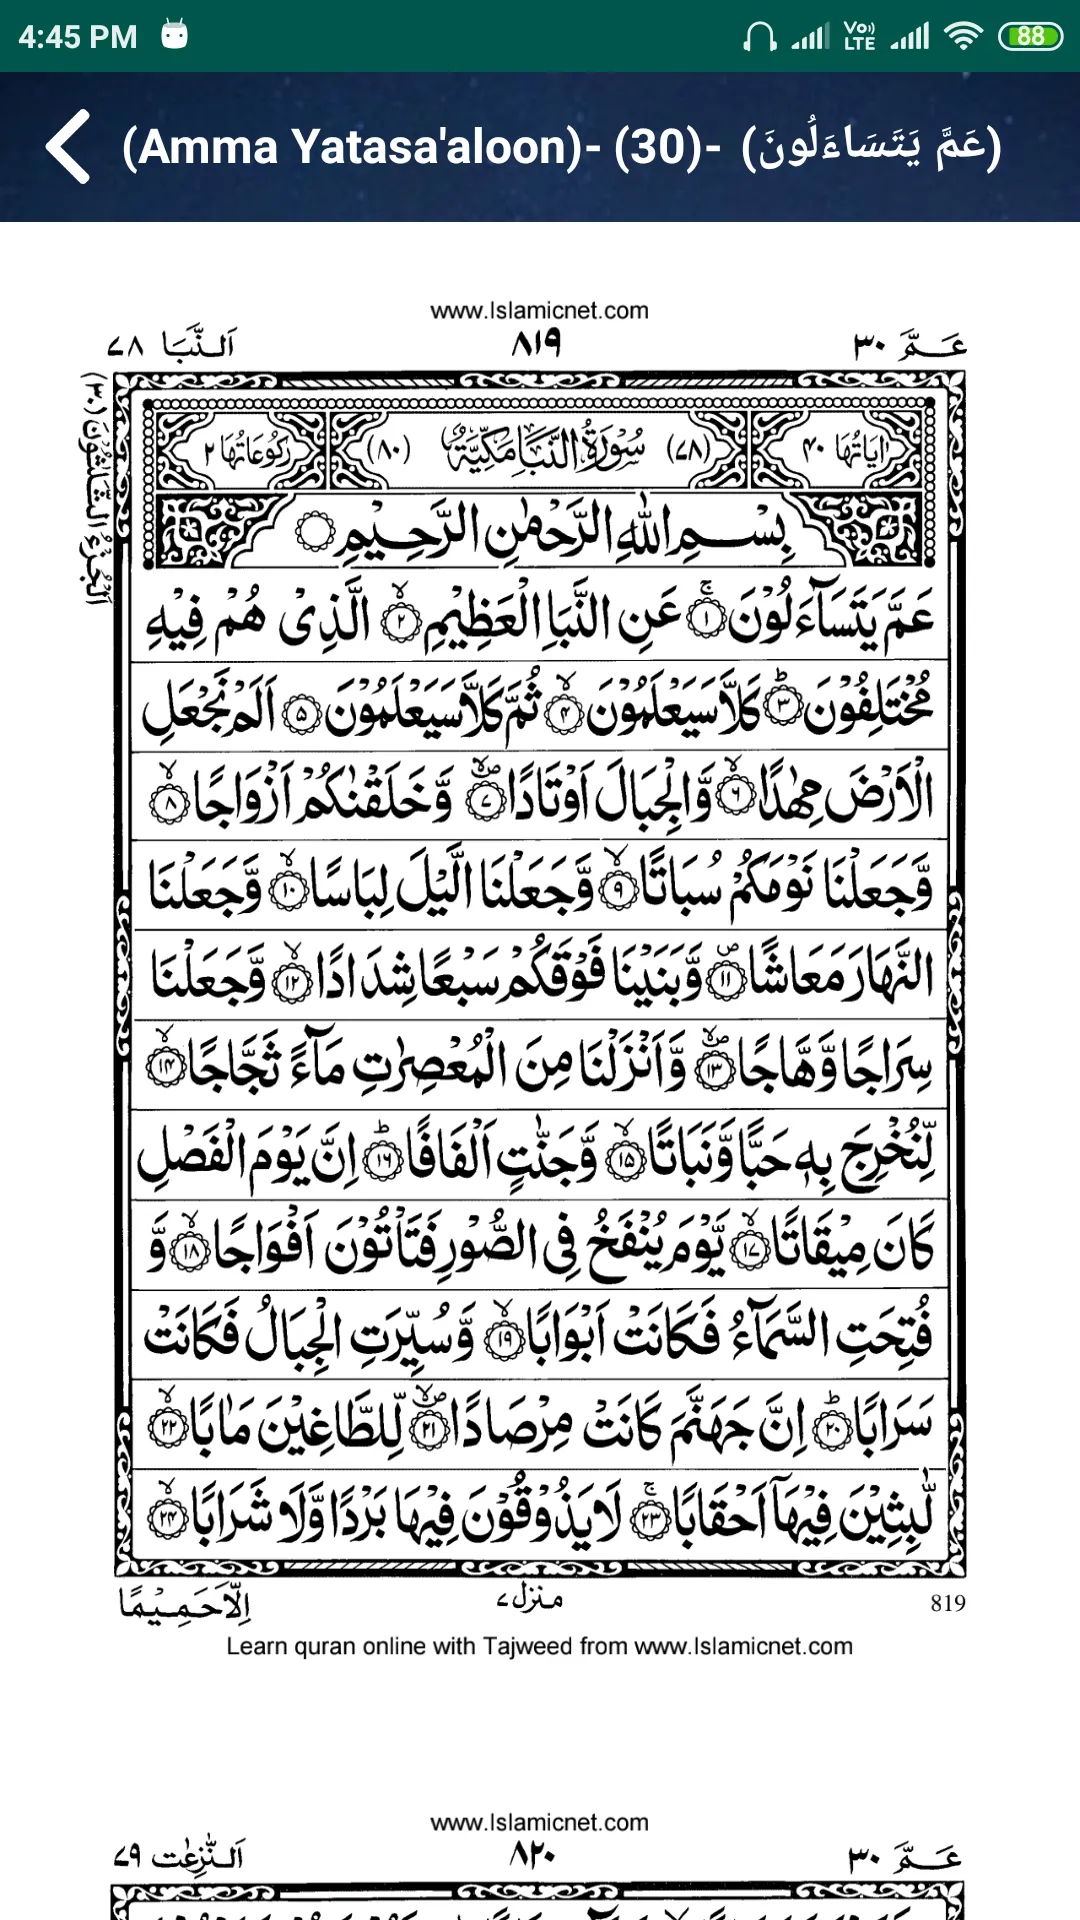 4:45 PM
Vo)) LTE
88
(Amma Yatasa'aloon)- (30)- (عَمَّ يَتَسَاءَلُونَ)
www.Islamicnet.com
عَـمَّ ٣٠ ٨١٩ اَلنَّبَا ٧٨
اَلْجُزْءُ الثَّلَاثُوْنَ (٣٠)
اٰيَاتُهَا ٤٠ (٧٨) سُوْرَةُ النَّبَاِ مَكِّيَّةٌ (٨٠) رُكُوْعَاتُهَا ٢
بِسْمِ اللّٰهِ الرَّحْمٰنِ الرَّحِيْمِ
عَمَّ يَتَسَآءَلُوْنَ ۚ ١ عَنِ النَّبَاِ الْعَظِيْمِ ۙ ٢ الَّذِىْ هُمْ فِيْهِ
مُخْتَلِفُوْنَ ؕ ٣ كَلَّا سَيَعْلَمُوْنَ ۙ ٤ ثُمَّ كَلَّا سَيَعْلَمُوْنَ ٥ اَلَمْ نَجْعَلِ
الْاَرْضَ مِهٰدًا ۙ ٦ وَّالْجِبَالَ اَوْتَادًا ۪ۙ ٧ وَّخَلَقْنٰكُمْ اَزْوَاجًا ۙ ٨
وَّجَعَلْنَا نَوْمَكُمْ سُبَاتًا ۙ ٩ وَّجَعَلْنَا الَّيْلَ لِبَاسًا ۙ ١٠ وَّجَعَلْنَا
النَّهَارَ مَعَاشًا ۪ ١١ وَّبَنَيْنَا فَوْقَكُمْ سَبْعًا شِدَادًا ۙ ١٢ وَّجَعَلْنَا
سِرَاجًا وَّهَّاجًا ۪ۙ ١٣ وَّاَنْزَلْنَا مِنَ الْمُعْصِرٰتِ مَآءً ثَجَّاجًا ۙ ١٤
لِّنُخْرِجَ بِهٖ حَبًّا وَّنَبَاتًا ۙ ١٥ وَّجَنّٰتٍ اَلْفَافًا ؕ ١٦ اِنَّ يَوْمَ الْفَصْلِ
كَانَ مِيْقَاتًا ۙ ١٧ يَّوْمَ يُنْفَخُ فِى الصُّوْرِ فَتَاْتُوْنَ اَفْوَاجًا ۙ ١٨ وَّ
فُتِحَتِ السَّمَآءُ فَكَانَتْ اَبْوَابًا ۙ ١٩ وَّسُيِّرَتِ الْجِبَالُ فَكَانَتْ
سَرَابًا ؕ ٢٠ اِنَّ جَهَنَّمَ كَانَتْ مِرْصَادًا ۪ۙ ٢١ لِّلطَّاغِيْنَ مَاٰبًا ۙ ٢٢
لّٰبِثِيْنَ فِيْهَآ اَحْقَابًا ۚ ٢٣ لَا يَذُوْقُوْنَ فِيْهَا بَرْدًا وَّلَا شَرَابًا ۙ ٢٤
819 منزل ٧ اِلَّا حَمِيْمًا
Learn quran online with Tajweed from www.Islamicnet.com
www.Islamicnet.com
عَـمَّ ٣٠ ٨٢٠ اَلنّٰزِعٰت ٧٩